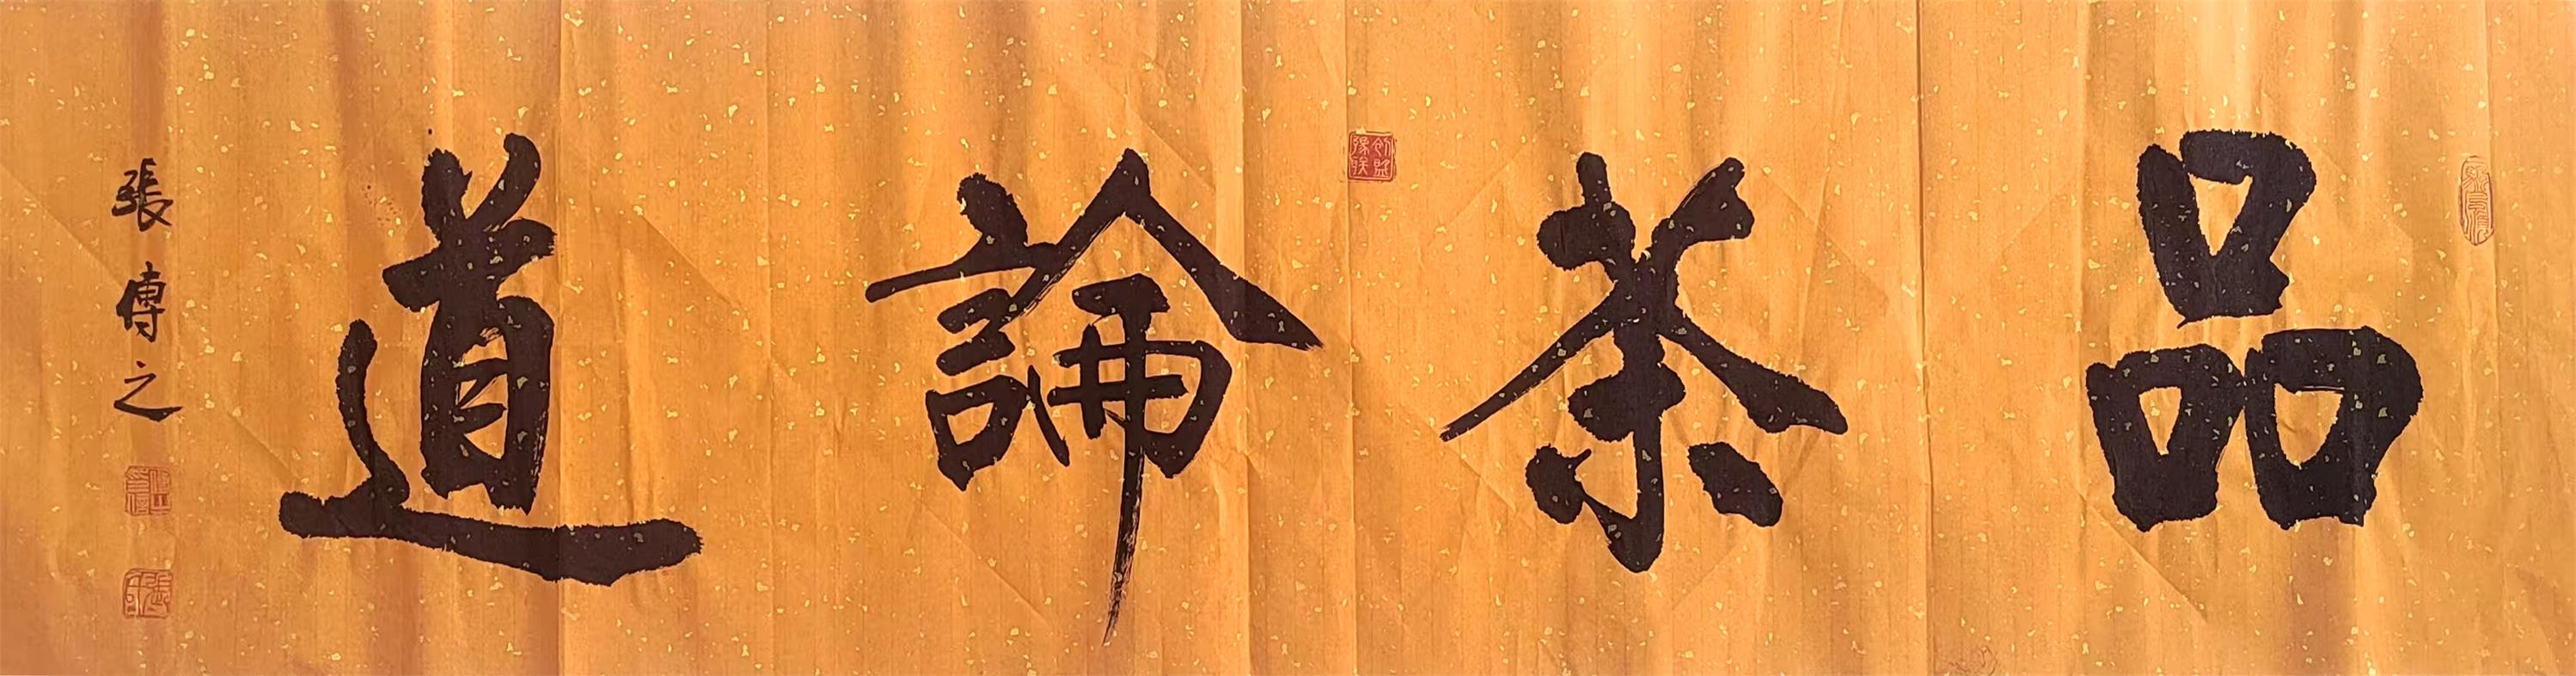 品茶論道
張傳之